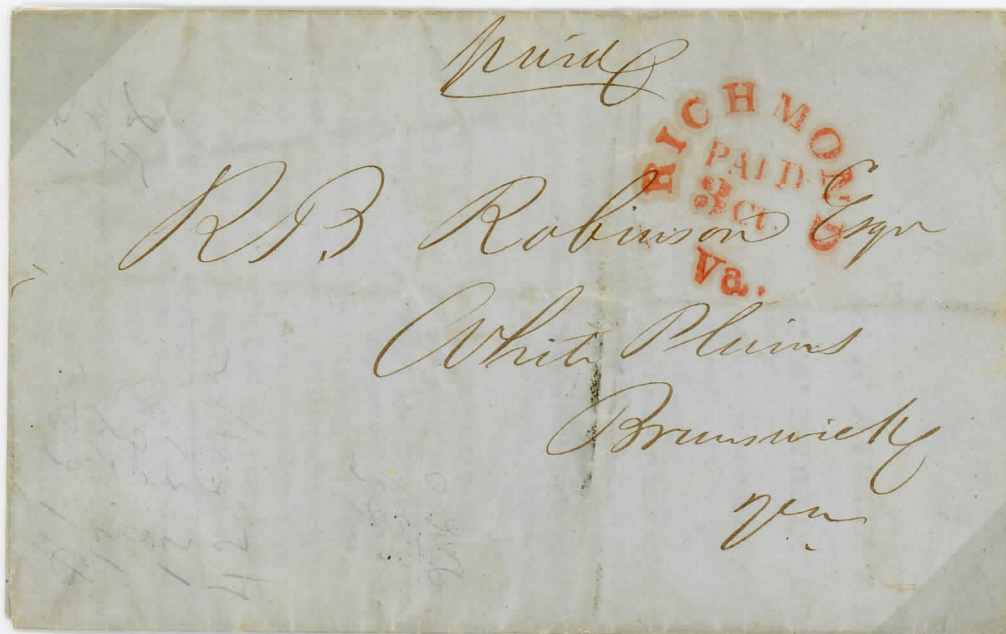 paid
RICHMOND
PAID
3 Ct.
Va.
R B Robinson Esqr
White Plains
Brunswick
Va